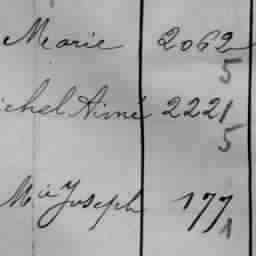 Marie 2062
5
ichel Aimé 2221
5
Mia Joseph 177
1